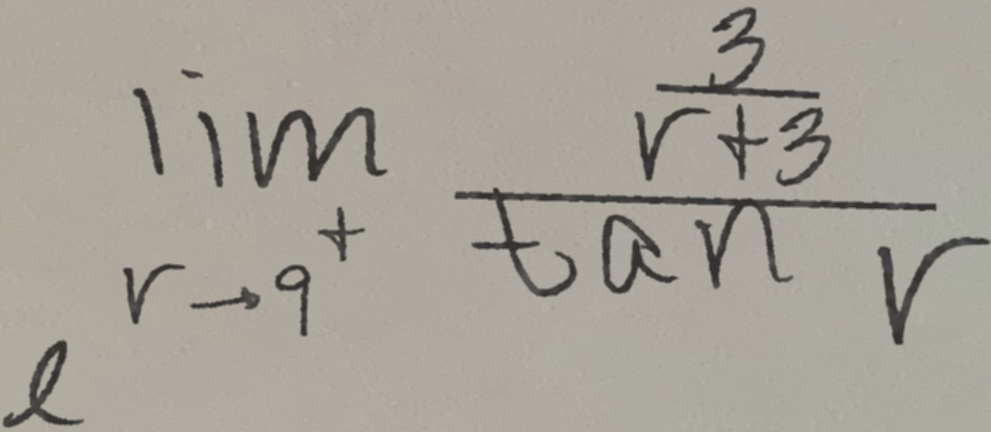 e^{\lim_{r \to 9^+} \frac{\frac{3}{r+3}}{\tan r}}